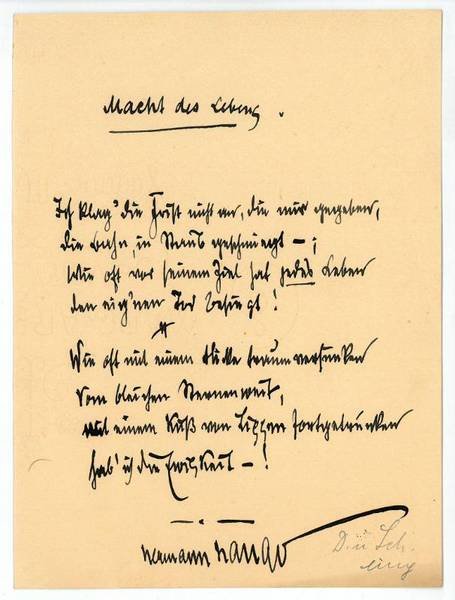 Macht des Lebens.
Ich klag' die Frist nicht an, die mir gegeben,
die Bahn, in Staub geschmiegt – ;
Wie oft vor seinem Ziel hat jedes Leben
den eig'nen Tod besiegt!
Wie oft mit einem Blicke traumversunken
vom bleichen Sternenweit,
mit einem Kuß von Lippen fortgetrunken
hab' ich die Ewigkeit – !
Hermann Hango
D. u Sch.